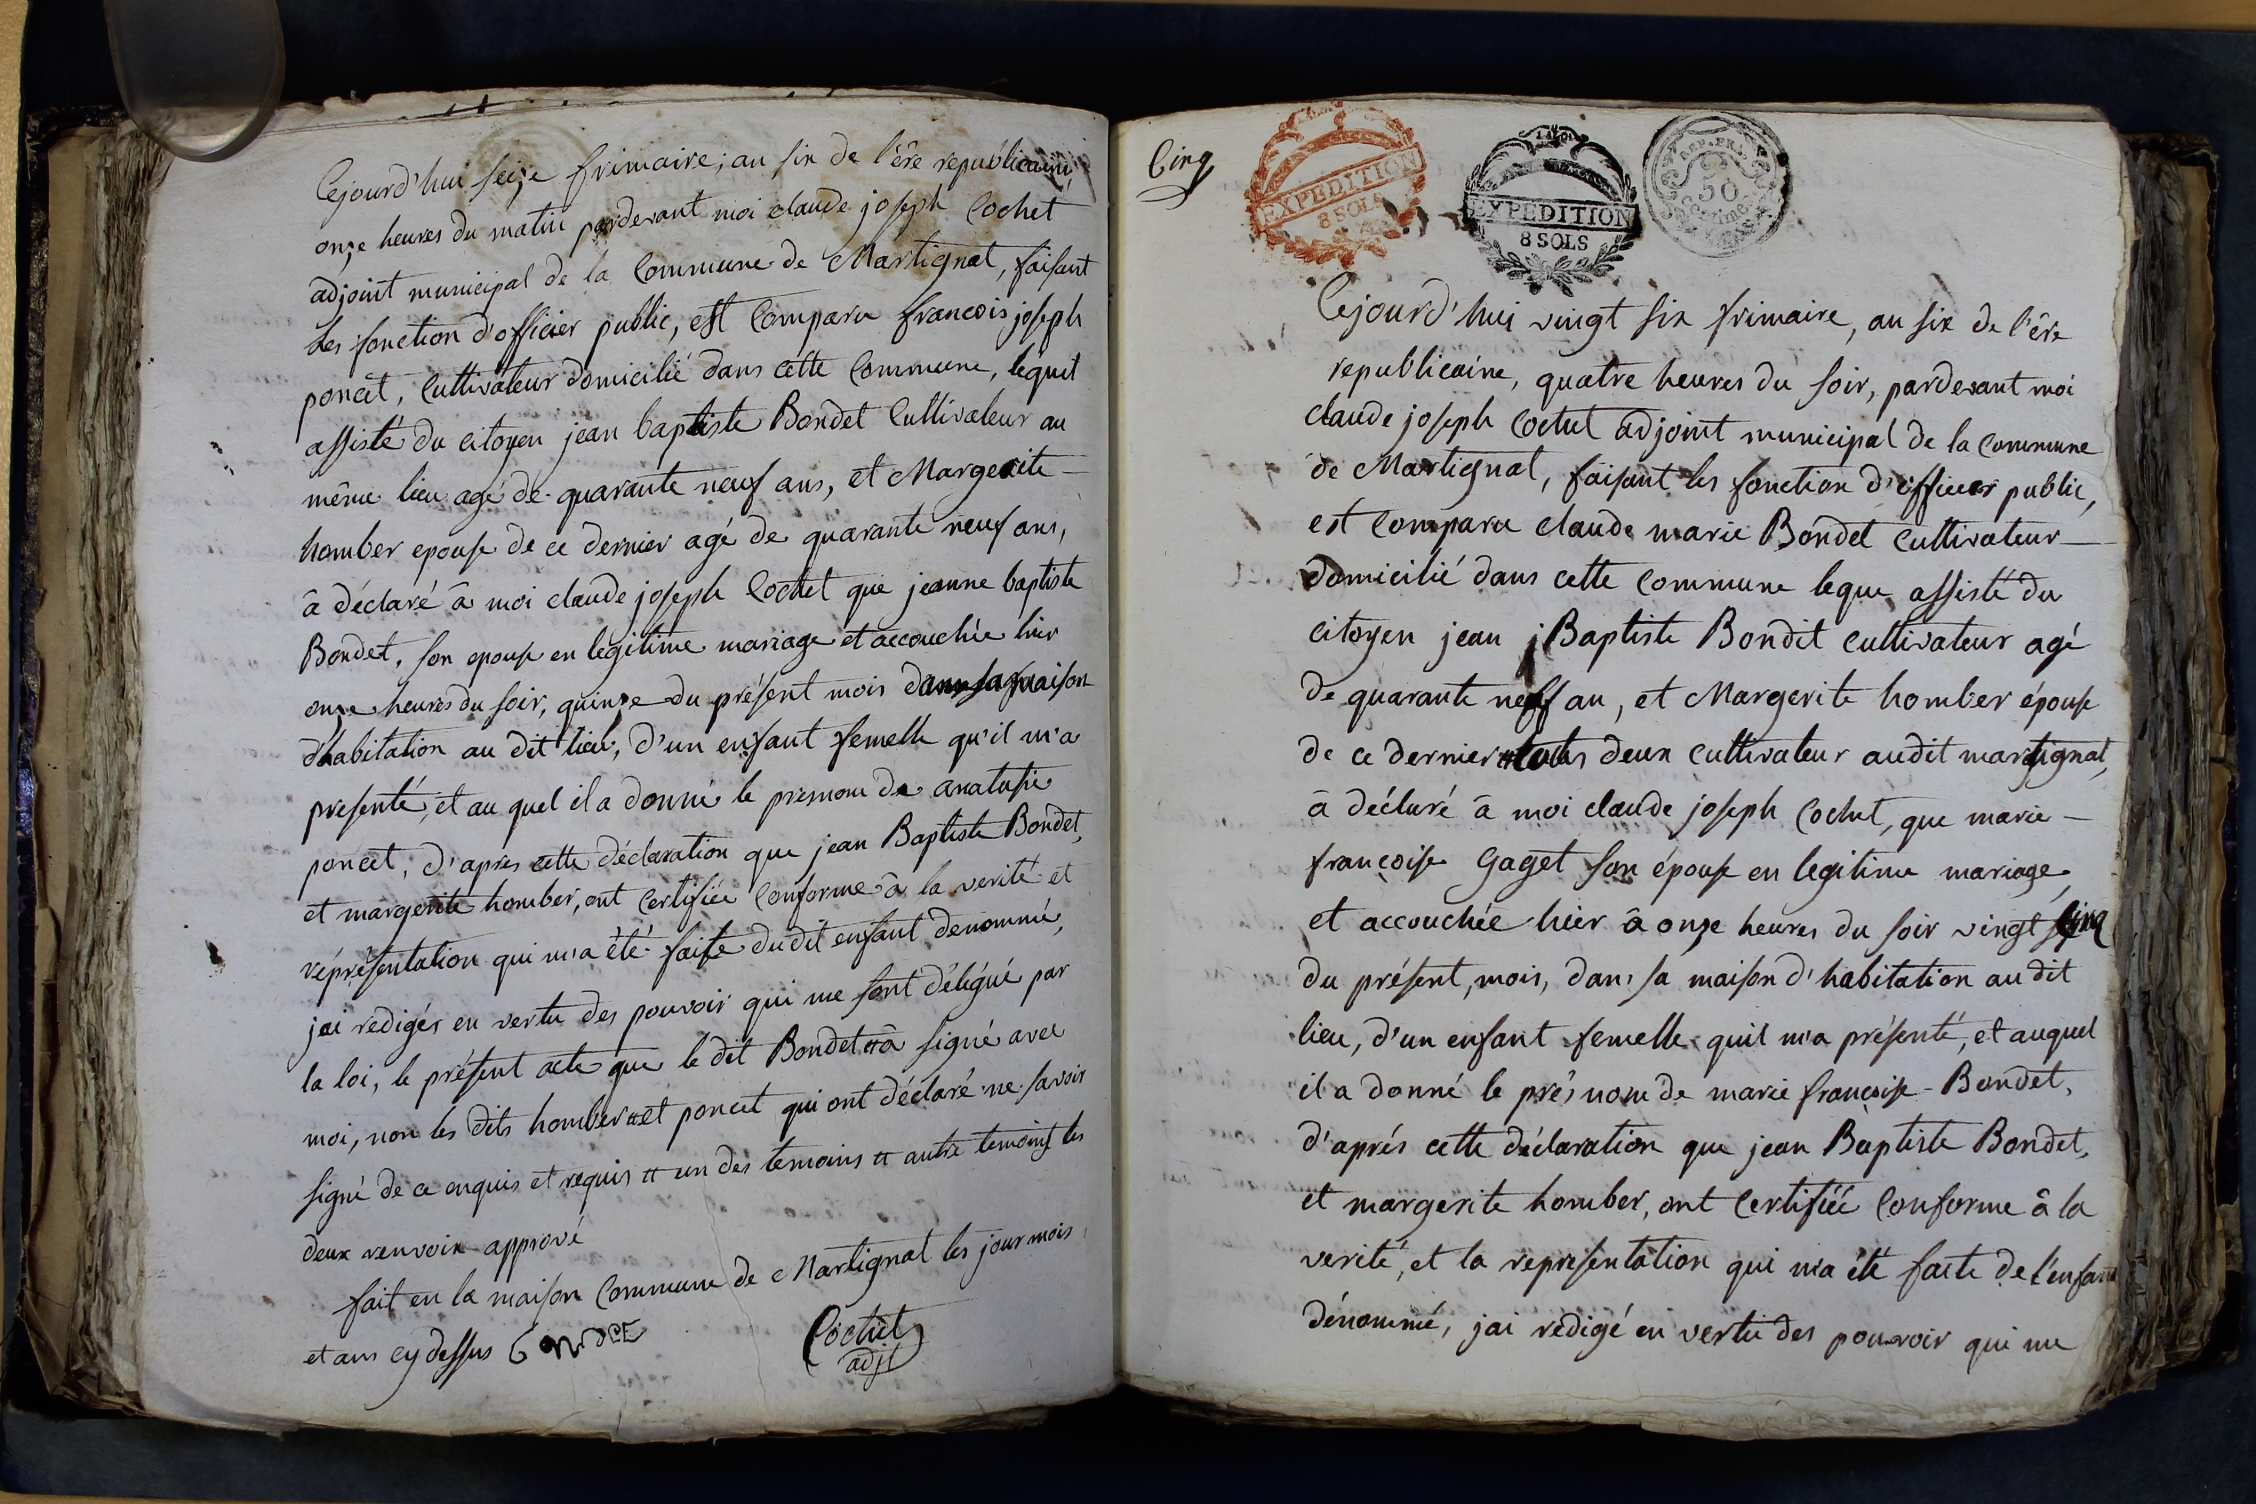 Cejourd'hui seize frimaire, an six de l'êre republicaine
onze heures du matin pardevant moi claude joseph Cochet
adjoint municipal de la Commune de Martignat, faisant
les fonction d'officier public, est Comparu francois joseph
poncet, Cultivateur domicilié dans cette Commune, lequel
assisté du citoyen jean baptiste Bondet Cultivateur au
même lieu agé de quarante neuf ans, et Margerite
homber epouse de ce dernier agé de quarante neuf ans,
â déclaré â moi claude joseph Cochet que jeanne baptiste
Bondet, son epouse en legitime mariage et accouchée hier
onze heures du soir, quinze du présent mois dans sa maison
d'habitation au dit lieu, d'un enfant femelle qu'il m'a
presenté, et au quel il a donné le prenom de anatasie
poncet, d'apres cette déclaration que jean Baptiste Bondet,
et margerite homber, ont Certifiée Conforme â la verité et
réprésentation qui m'a été faite dudit enfant denommé,
jai redigér en vertu des pouvoir qui me sont délégué par
la loi, le présent acte que le dit Bondet # â signé avec
moi, non les dits homber # et poncet qui ont déclaré ne savoir
signé de ce enquis et requis # un des temoins # autre temoins les
deux renvoix apprové
fait en la maison Commune de Martignat les jour mois
et ans cy dessus
Cochet
adjt
Cinq
EXPEDITION
8 SOLS
EXPEDITION
8 SOLS
REP. FRA.
50
centime
Cejourd'hui vingt six frimaire, an six de l'êre
republicaine, quatre heures du soir, pardevant moi
claude joseph Cochet adjoint municipal de la Commune
de Martignat, faisant les fonction d'officier public,
est Comparu claude marie Bondet Cultivateur
domicilié dans cette Commune leque assisté du
citoyen jean Baptiste Bondet cultivateur agé
de quarante neuf an, et Margerite homber épouse
de ce dernier deux cultivateur audit martignat,
â déclaré â moi claude joseph Cochet, que marie
françoise Gaget son épouse en legitime mariage,
et accouchée hier â onze heures du soir vingt cinq
du présent, mois, dans sa maison d'habitation au dit
lieu, d'un enfant femelle quil m'a présenté, et auquel
il a donné le prés nom de marie françoise Bondet,
d'aprés cette déclaration que jean Baptiste Bondet,
et margerite homber, ont Certifiée Conforme â la
verité, et la representation qui m'a été faite de l'enfant
dénommé, jai redigé en vertu des pouvoir qui me